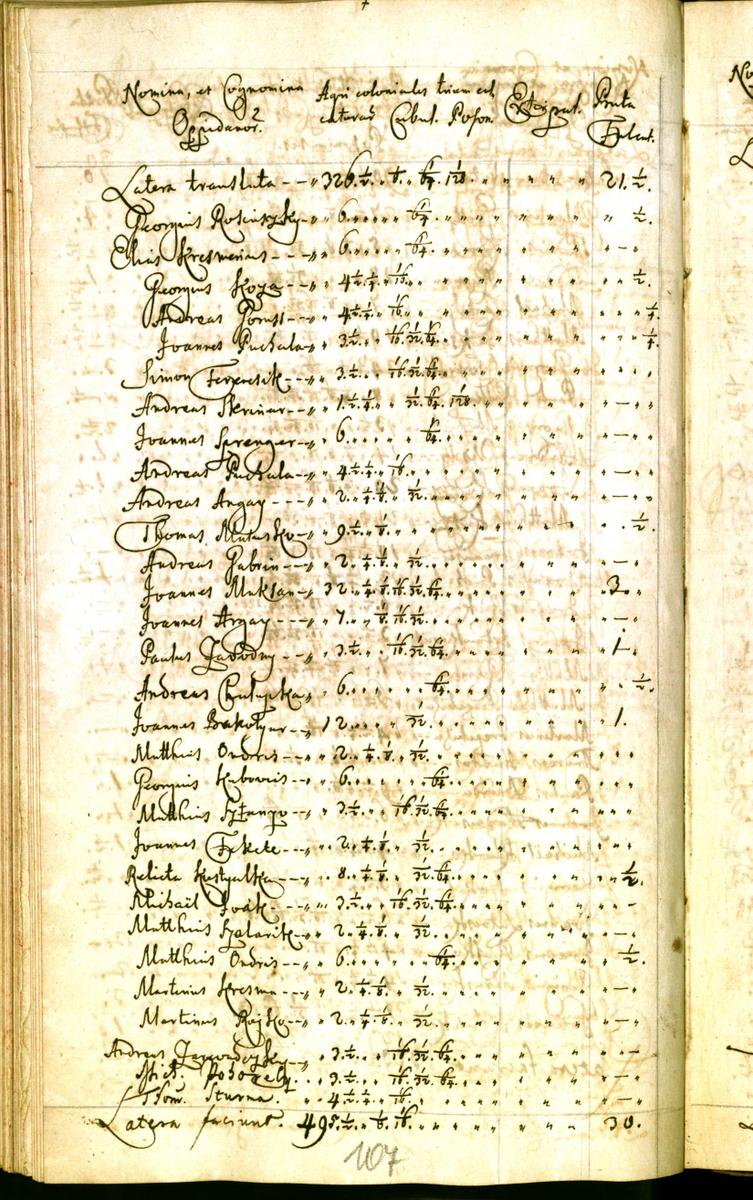 Nomina, et Cognomina Agri coloniales trium cal Extirpat. Prata
Oppidanor. caturae Cubul. Poson. Falcat.
Latera translata -- „ 326. 1/2 . 1/8 . 1/64 . 1/128 21. 1/2.
Georgius 6. 1/64 1/2.
Elias Kresmerius --- „ 6. 1/64. -
Georgius Koza -- „ 4 1/2. 1/4. 1/16. 1/2.
Andreas Porust -- „ 4 1/2. 1/4. 1/16. 1/4.
Joannes Puchala -- „ 3 1/2. 1/16. 1/32. 1/64. 1/4.
Simon -- „ 3. 1/2. 1/16. 1/32. 1/64.
Andreas Skrinar -- „ 1. 1/2. 1/4. 1/32. 1/64. 1/128 -
Joannes Sprenger -- „ 6. 1/64. -
Andreas Puchala -- „ 4. 1/2. 1/4. 1/16. -
Andreas Argay --- „ 2. 1/4. 1/8. 1/32. -
Thomas Matusko -- „ 9. 1/2. 1/8. 1/2.
Andreas Gabrin -- „ 2. 1/4. 1/8. 1/32. -
Joannes Muksan -- „ 32. 1/4. 1/8. 1/16. 1/32. 1/64. 3.
Joannes Argay -- „ 7. 1/8. 1/16. 1/32. -
Paulus Zavodny -- „ 3. 1/2. 1/16. 1/32. 1/64. 1.
Andreas Chalupka „ 6. 1/64. 1/2.
Joannes -- „ 12. 1/32. 1.
Matthias Ondris -- „ 2. 1/4. 1/8. 1/32.
Georgius Kubovics -- „ 6. 1/64.
Matthias -- „ 3. 1/2. 1/16. 1/32. 1/64.
Joannes Fekete -- „ 2. 1/4. 1/8. 1/32.
Relicta --- „ 8. 1/4. 1/8. 1/32. 1/64. 1/2.
Michail -- „ 3. 1/2. 1/16. 1/32. 1/64. -
Matthias -- „ 2. 1/4. 1/8. 1/32. -
Matthias Ondris -- „ 6. 1/64. 1/2.
Martinus Kresma -- „ 2. 1/4. 1/8. 1/32. -
Martinus Rajsko -- „ 2. 1/4. 1/8. 1/32. -
Andreas „ 3. 1/2. 1/16. 1/32. 1/64. -
Mich. Pohorely. 3. 1/2. 1/16. 1/32. 1/64. -
Thom. Sturma. 4. 1/2. 1/4. 1/16. -
Latera faciunt. 495. 1/2. 1/8. 1/16. 30.
107